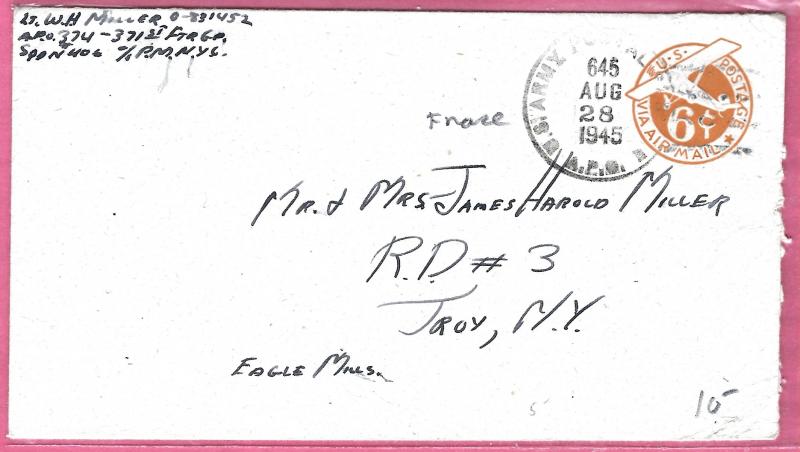 LT. W.H MILLER O-831452
A.P.O. 374 - 371ST FTR GP.
SPDN 406 % P.M. N.Y.C.
U.S. ARMY POSTAL
645
AUG
28
1945
A.P.O.
U.S. POSTAGE
6¢
VIA AIR MAIL
MR. & MRS. JAMES HAROLD MILLER
R.D. # 3
TROY, N.Y.
EAGLE MILLS.
5
10